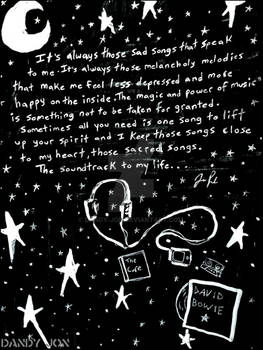 It's always those sad songs that speak
to me. It's always those melancholy melodies
that make me feel less depressed and more
happy on the inside. The magic and power of music
is something not to be taken for granted.
Sometimes all you need is one song to lift
up your spirit and I keep those songs close
to my heart, those sacred songs.
The soundtrack to my life.
The
Cure
DAVID
BOWIE
DANDY JON